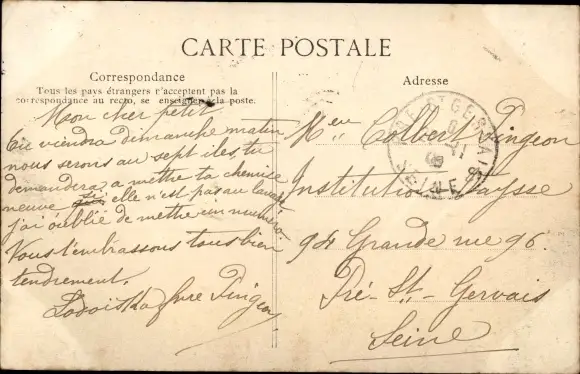 CARTE POSTALE
Correspondance
Tous les pays étrangers n'acceptent pas la
correspondance au recto, se renseigner à la poste.
Adresse
Mon cher petit
Tu viendra dimanche matin
nous serons au sept iles, tu
demandera a mettre ta chemise
neuve elle n'est pas au lavage
j'ai oublié de mettre un numero
Vous t'embrassons tous bien
tendrement.
Pingeon
Mr Colbert Pingeon
Institution Vaysse
94 Grande rue 96.
Pré-St-Gervais
Seine
PRE ST GERVAIS
SEINE